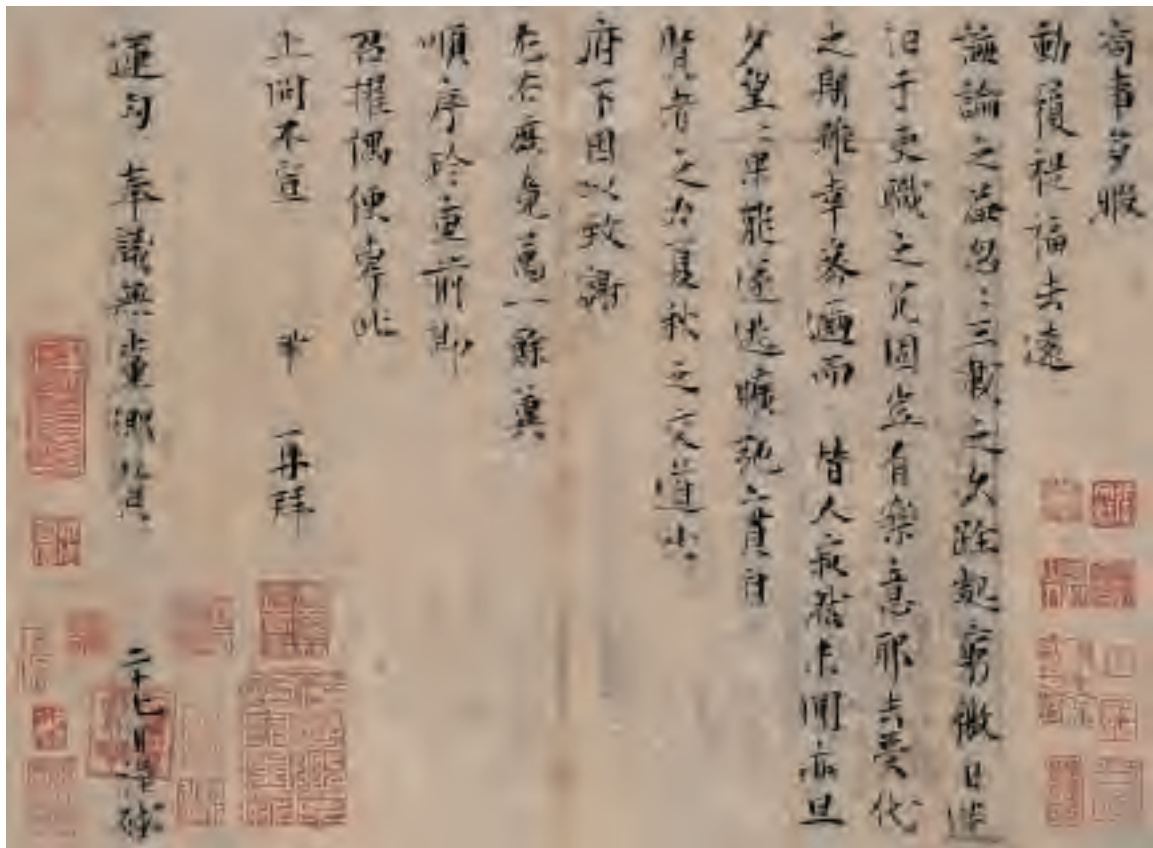 局事多暇
動履禔福去遠
誨論之益忽忽三載之久跧處窮徼日迷
汩于吏職之冗固豈有樂意耶去受代
之期雖幸密邇而替人寂然未聞亦旦
夕望望果能遂逃曠弛之責自
賢者之力夏秋之交道出
府下因以致謝
左右庶竟萬一餘冀
順序珍重前即
召擢偶便專此
上問不宣 鞏再拜
運勾奉議無黨鄉賢 二十七日謹啟